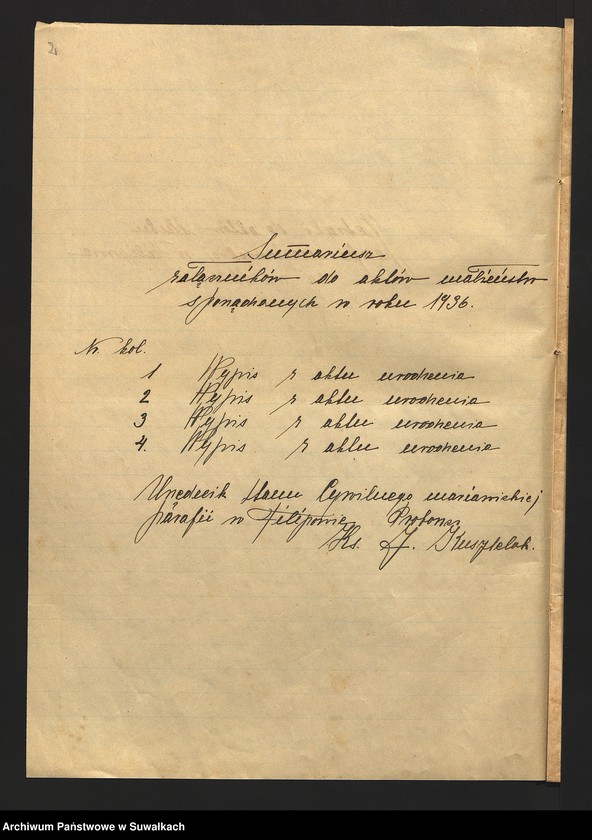 2
Sumariusz
załączników do aktów małżeństw
sporządzonych w roku 1936.
Nr. kol.
1 Wypis z aktu urodzenia
2 Wypis z aktu urodzenia
3 Wypis z aktu urodzenia
4. Wypis z aktu urodzenia
Urzędnik Stanu Cywilnego mariawickiej
parafii w Filipowie Proboszcz
Ks. J. Kusztelak.
Archiwum Państwowe w Suwałkach